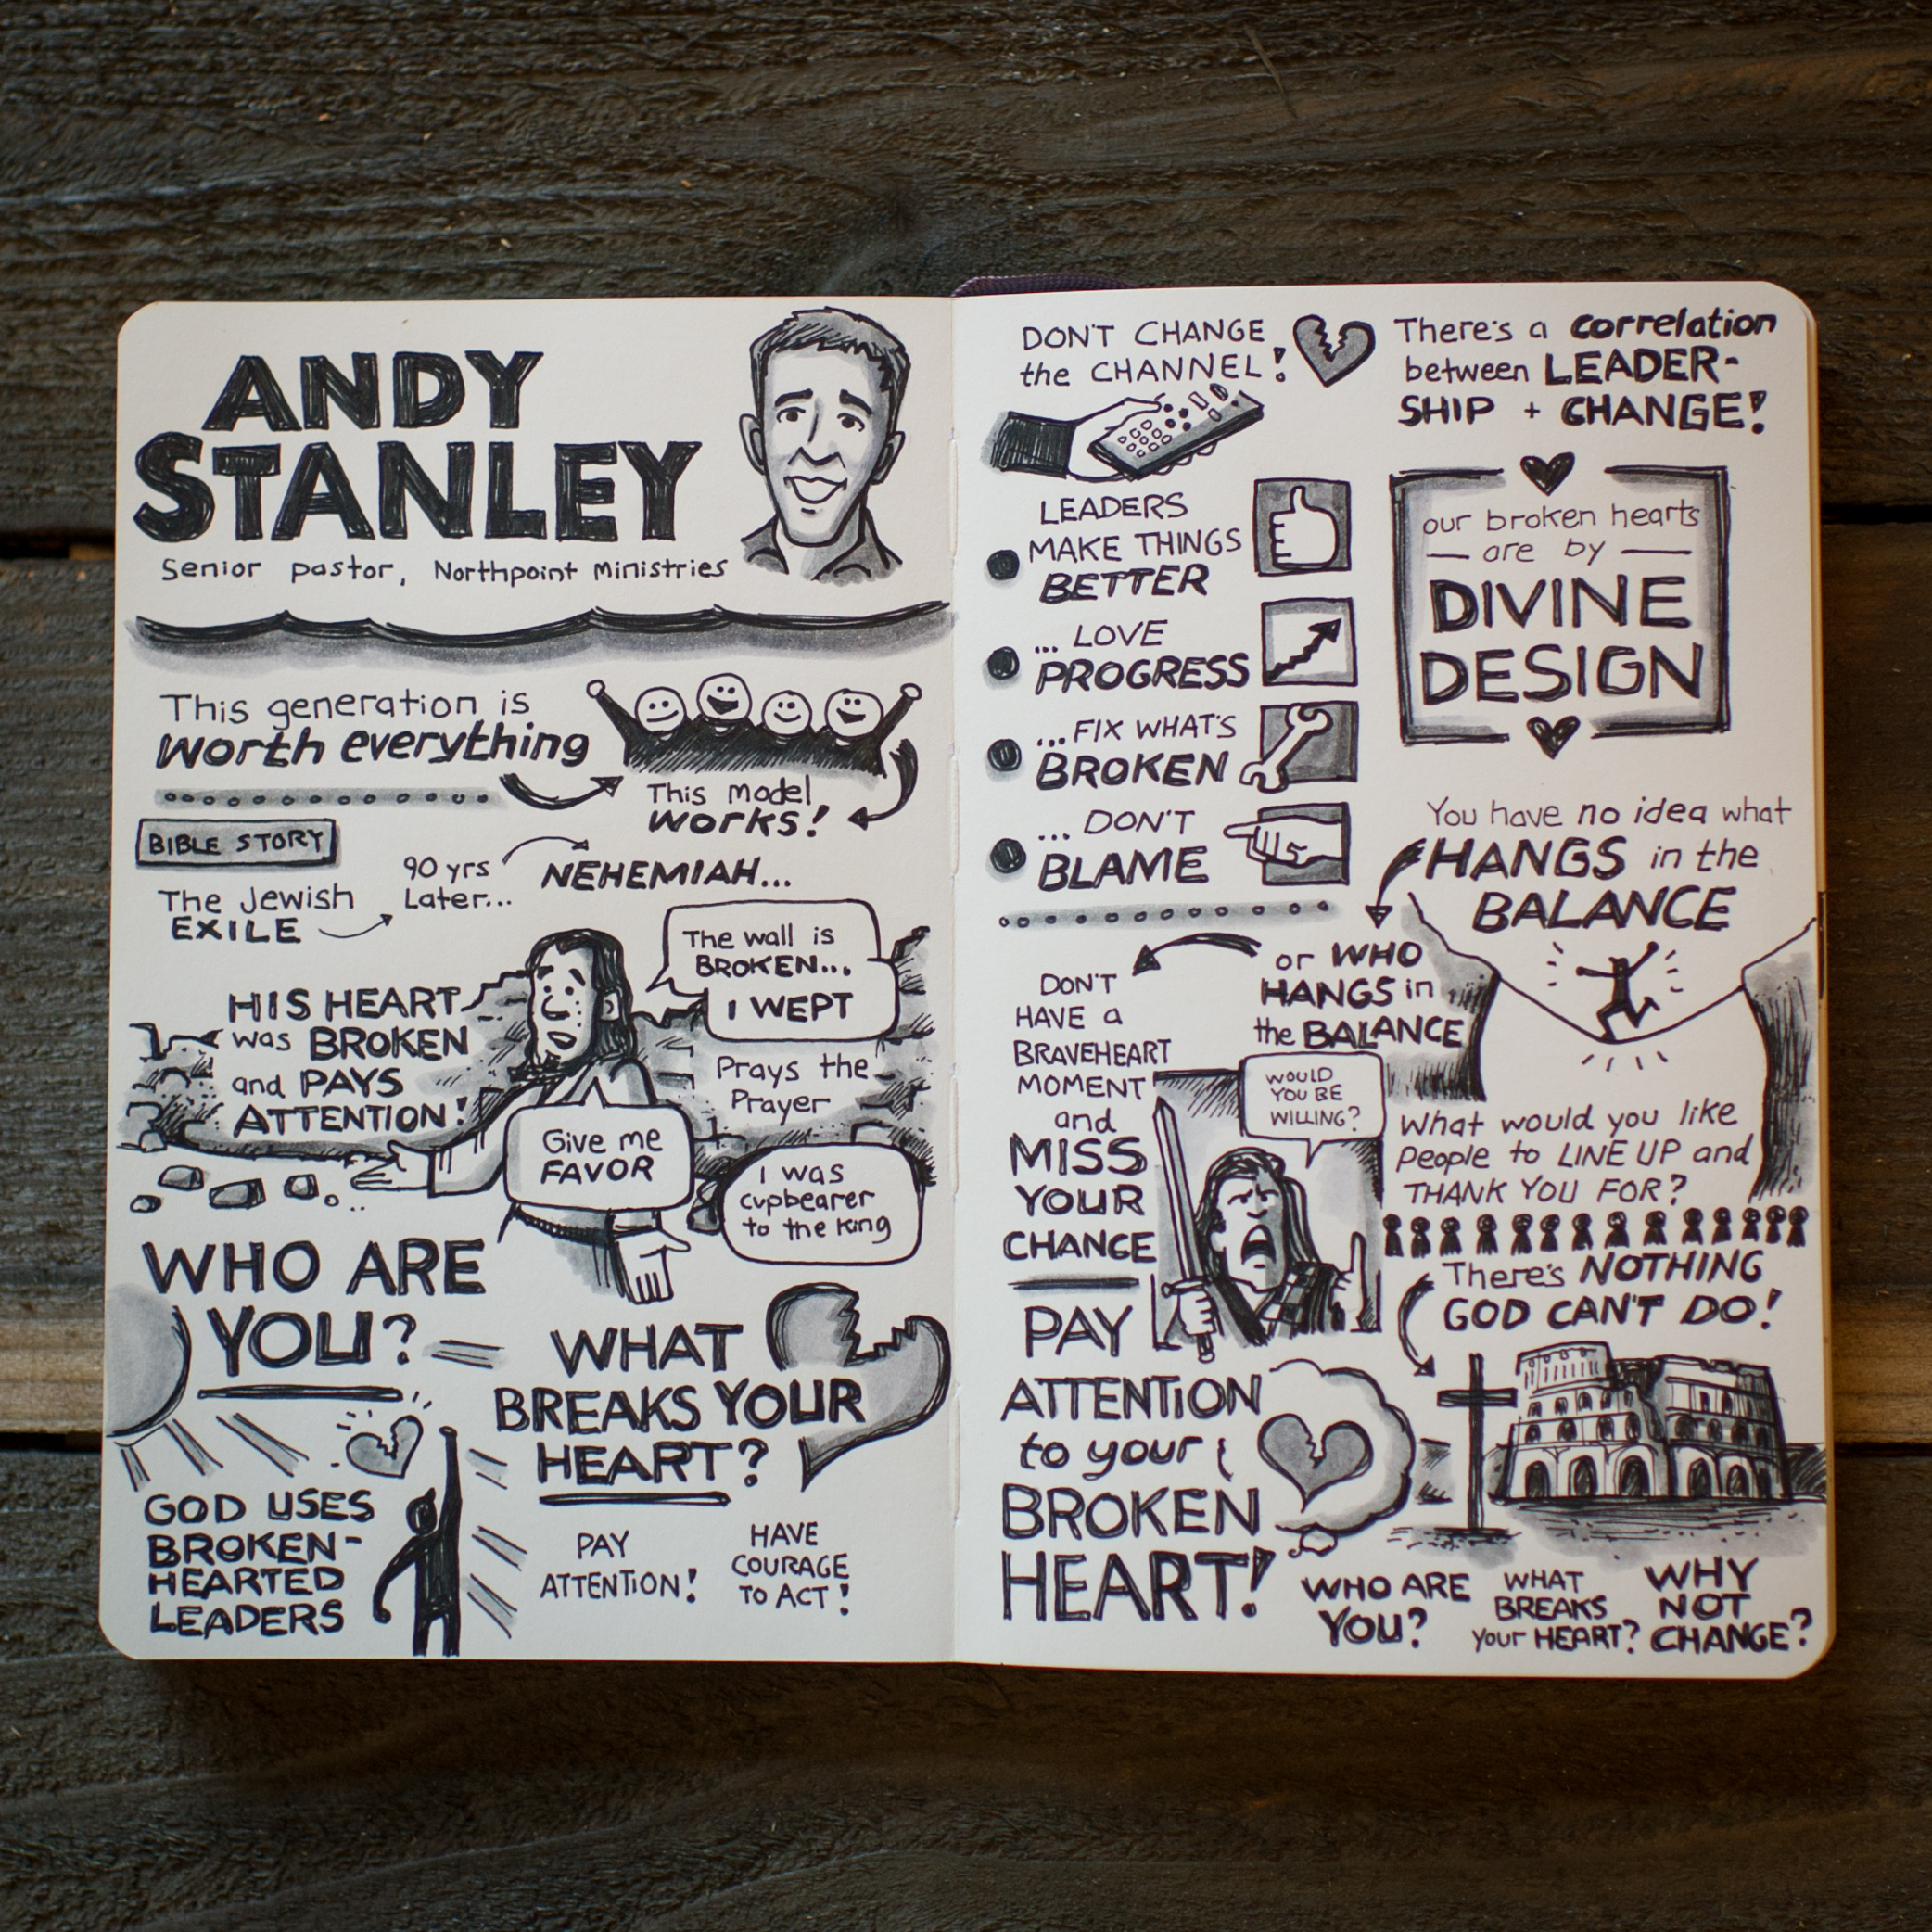 ANDY
STANLEY
Senior pastor, Northpoint Ministries
This generation is
worth everything
This model
works!
BIBLE STORY
The Jewish
EXILE
90 yrs
Later...
NEHEMIAH...
The wall is
BROKEN...
I WEPT
HIS HEART
was BROKEN
and PAYS
ATTENTION!
Prays the
Prayer
Give me
FAVOR
I was
cupbearer
to the king
WHO ARE
YOU?
WHAT
BREAKS YOUR
HEART?
GOD USES
BROKEN-
HEARTED
LEADERS
PAY
ATTENTION!
HAVE
COURAGE
TO ACT!
DON'T CHANGE
the CHANNEL!
There's a correlation
between LEADER-
SHIP + CHANGE!
LEADERS
MAKE THINGS
BETTER
... LOVE
PROGRESS
...FIX WHAT'S
BROKEN
... DON'T
BLAME
our broken hearts
are by
DIVINE
DESIGN
You have no idea what
HANGS in the
BALANCE
or WHO
HANGS in
the BALANCE
DON'T
HAVE a
BRAVEHEART
MOMENT
and
MISS
YOUR
CHANCE
WOULD
YOU BE
WILLING?
What would you like
people to LINE UP and
THANK YOU FOR?
There's NOTHING
GOD CAN'T DO!
PAY
ATTENTION
to your
BROKEN
HEART!
WHO ARE
YOU?
WHAT
BREAKS
your HEART?
WHY
NOT
CHANGE?